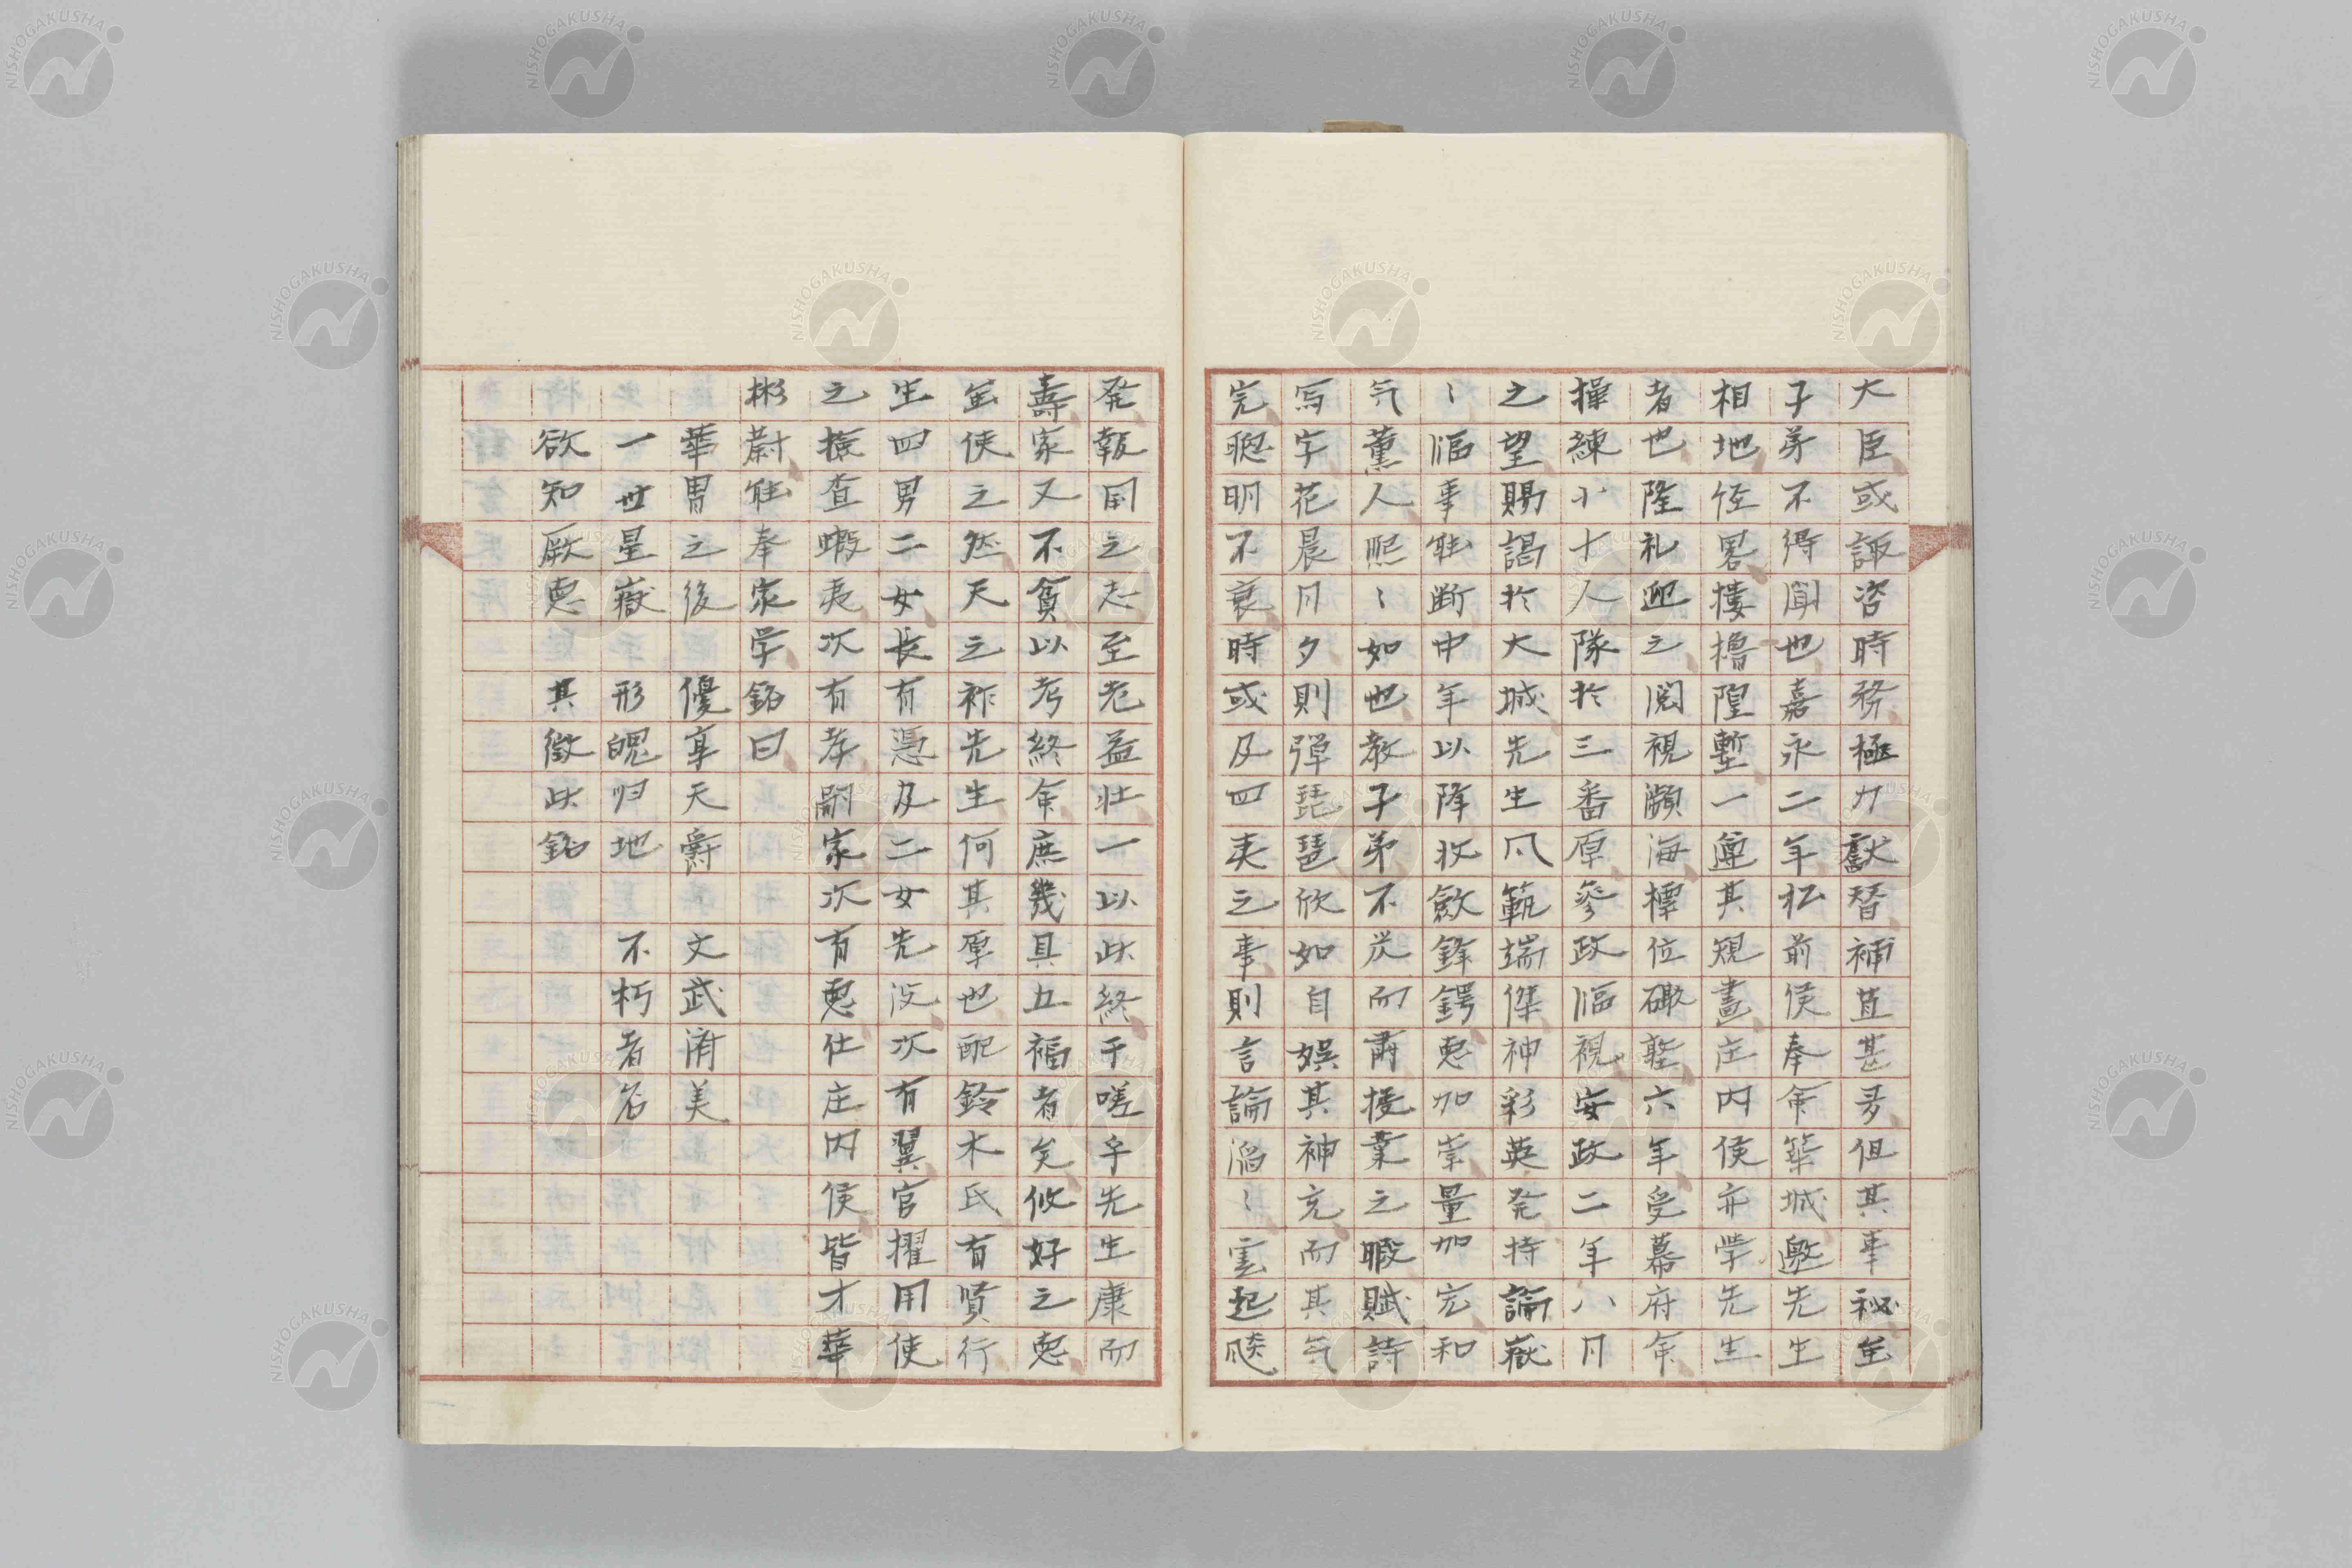 大臣或諏咨時務極力献替補苴甚多但其事祕至
子弟不得聞也嘉永二年松前侯奉命築城邀先生
相地径畧摟擼隍塹一遵其規畫庄内侯亦学先生
者也隆礼迎之閲視瀕海標位礮墪六年受幕府命
操練小十人隊於三番原参政臨視安政二年八月
之望賜謁於大城先生风範端傑神彩英発持論嶽
〻臨事能断中年以降收斂鋒鍔恵加崇量加宏和
气薫人熈〻如也教子弟不炭而肅授業之暇賦詩
写字花晨月夕則弾琵琶欣如自娯其神充而其气
完聰明不衰時或及四夷之事則言論滔〻雲起飈
発報国之志至老益壮一以此終于嗟乎先生康而
壽家又不貧以考終命庶幾具五福者矣攸好之恵
至使之然天之祚先生何其厚也配鈴木氏有賢行
生四男二女長有憑及二女先没次有翼官擢用使
之撿查蝦夷次有孝嗣家次有恵仕庄内侯皆才華
彬蔚能奉家学銘曰
華胄之後 優享天爵 文武済美
一世星嶽 形魄归地 不朽者名
欲知厥恵 其徴此銘
NISHOGAKUSHA